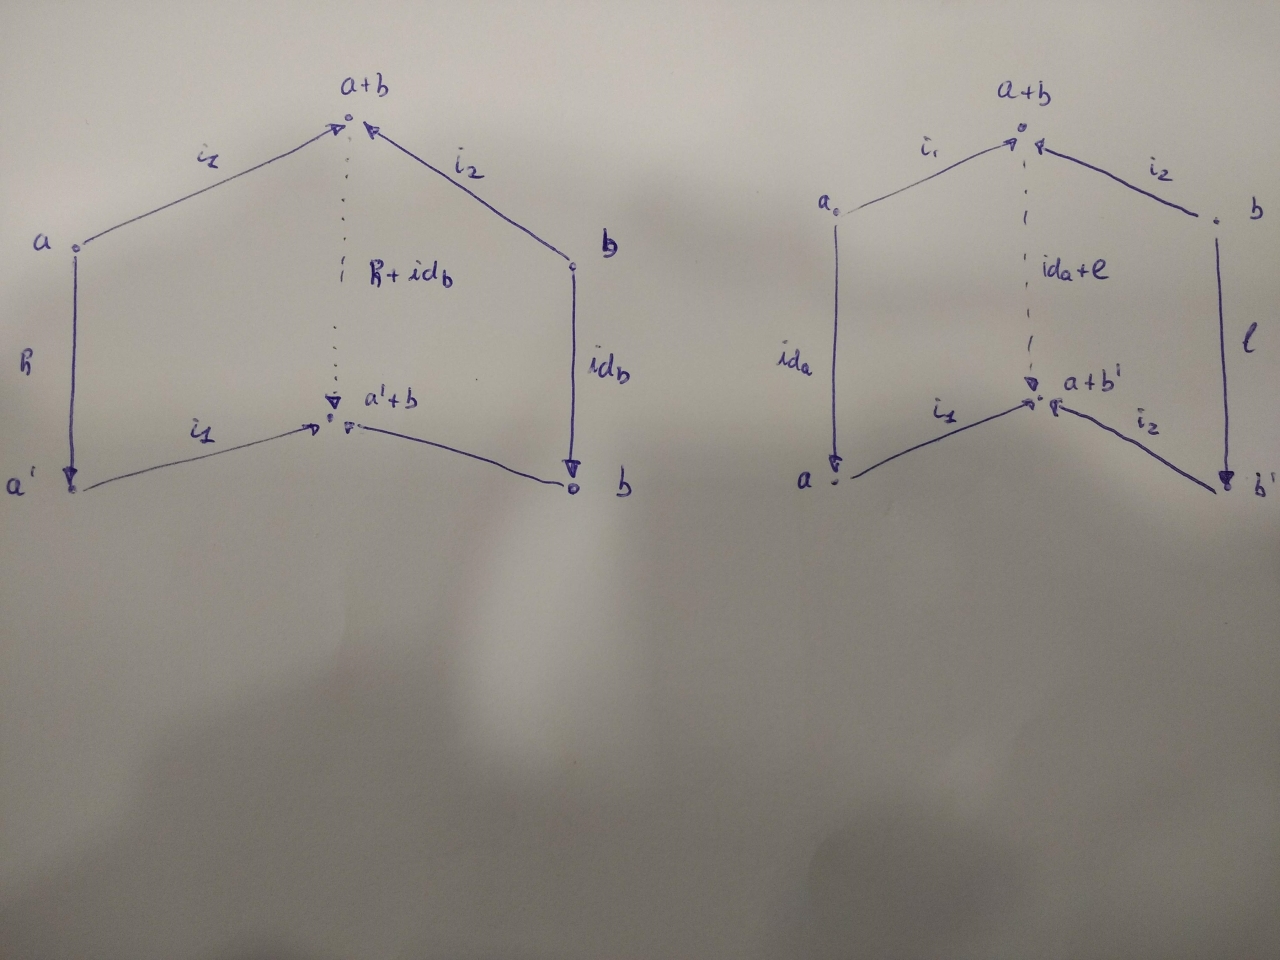 a+b
i₁
i₂
a
b
h+id_b
h
id_b
a'+b
i₁
a'
b
a+b
i₁
i₂
a
b
id_a+l
id_a
l
a+b'
i₁
i₂
a
b'